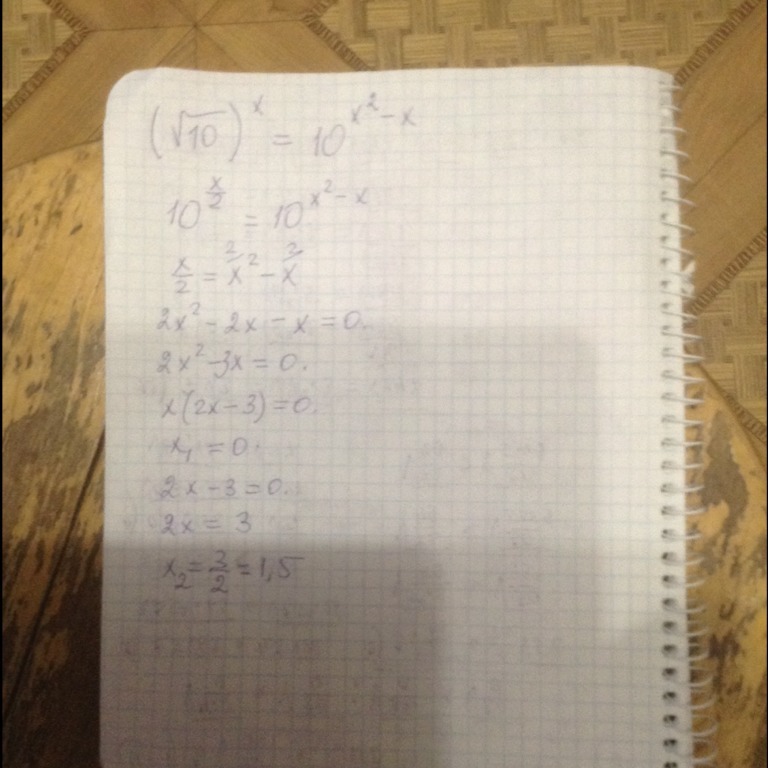 (√10)^x = 10^(x²-x)
10^(x/2) = 10^(x²-x)
x/2 = ²/x² - ²/x
2x² - 2x - x = 0.
2x² - 3x = 0.
x(2x-3) = 0.
x₁ = 0.
2x - 3 = 0.
2x = 3
x₂ = 3/2 = 1,5